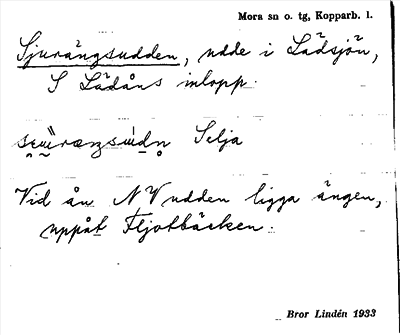 Mora sn o. tg, Kopparb. l.
Sjurängsudden, udde i Lädsjön,
S Lädåns inlopp.
Selja
Vid ån NV udden ligga ängen,
uppåt Fljotbäcken.
Bror Lindén 1933